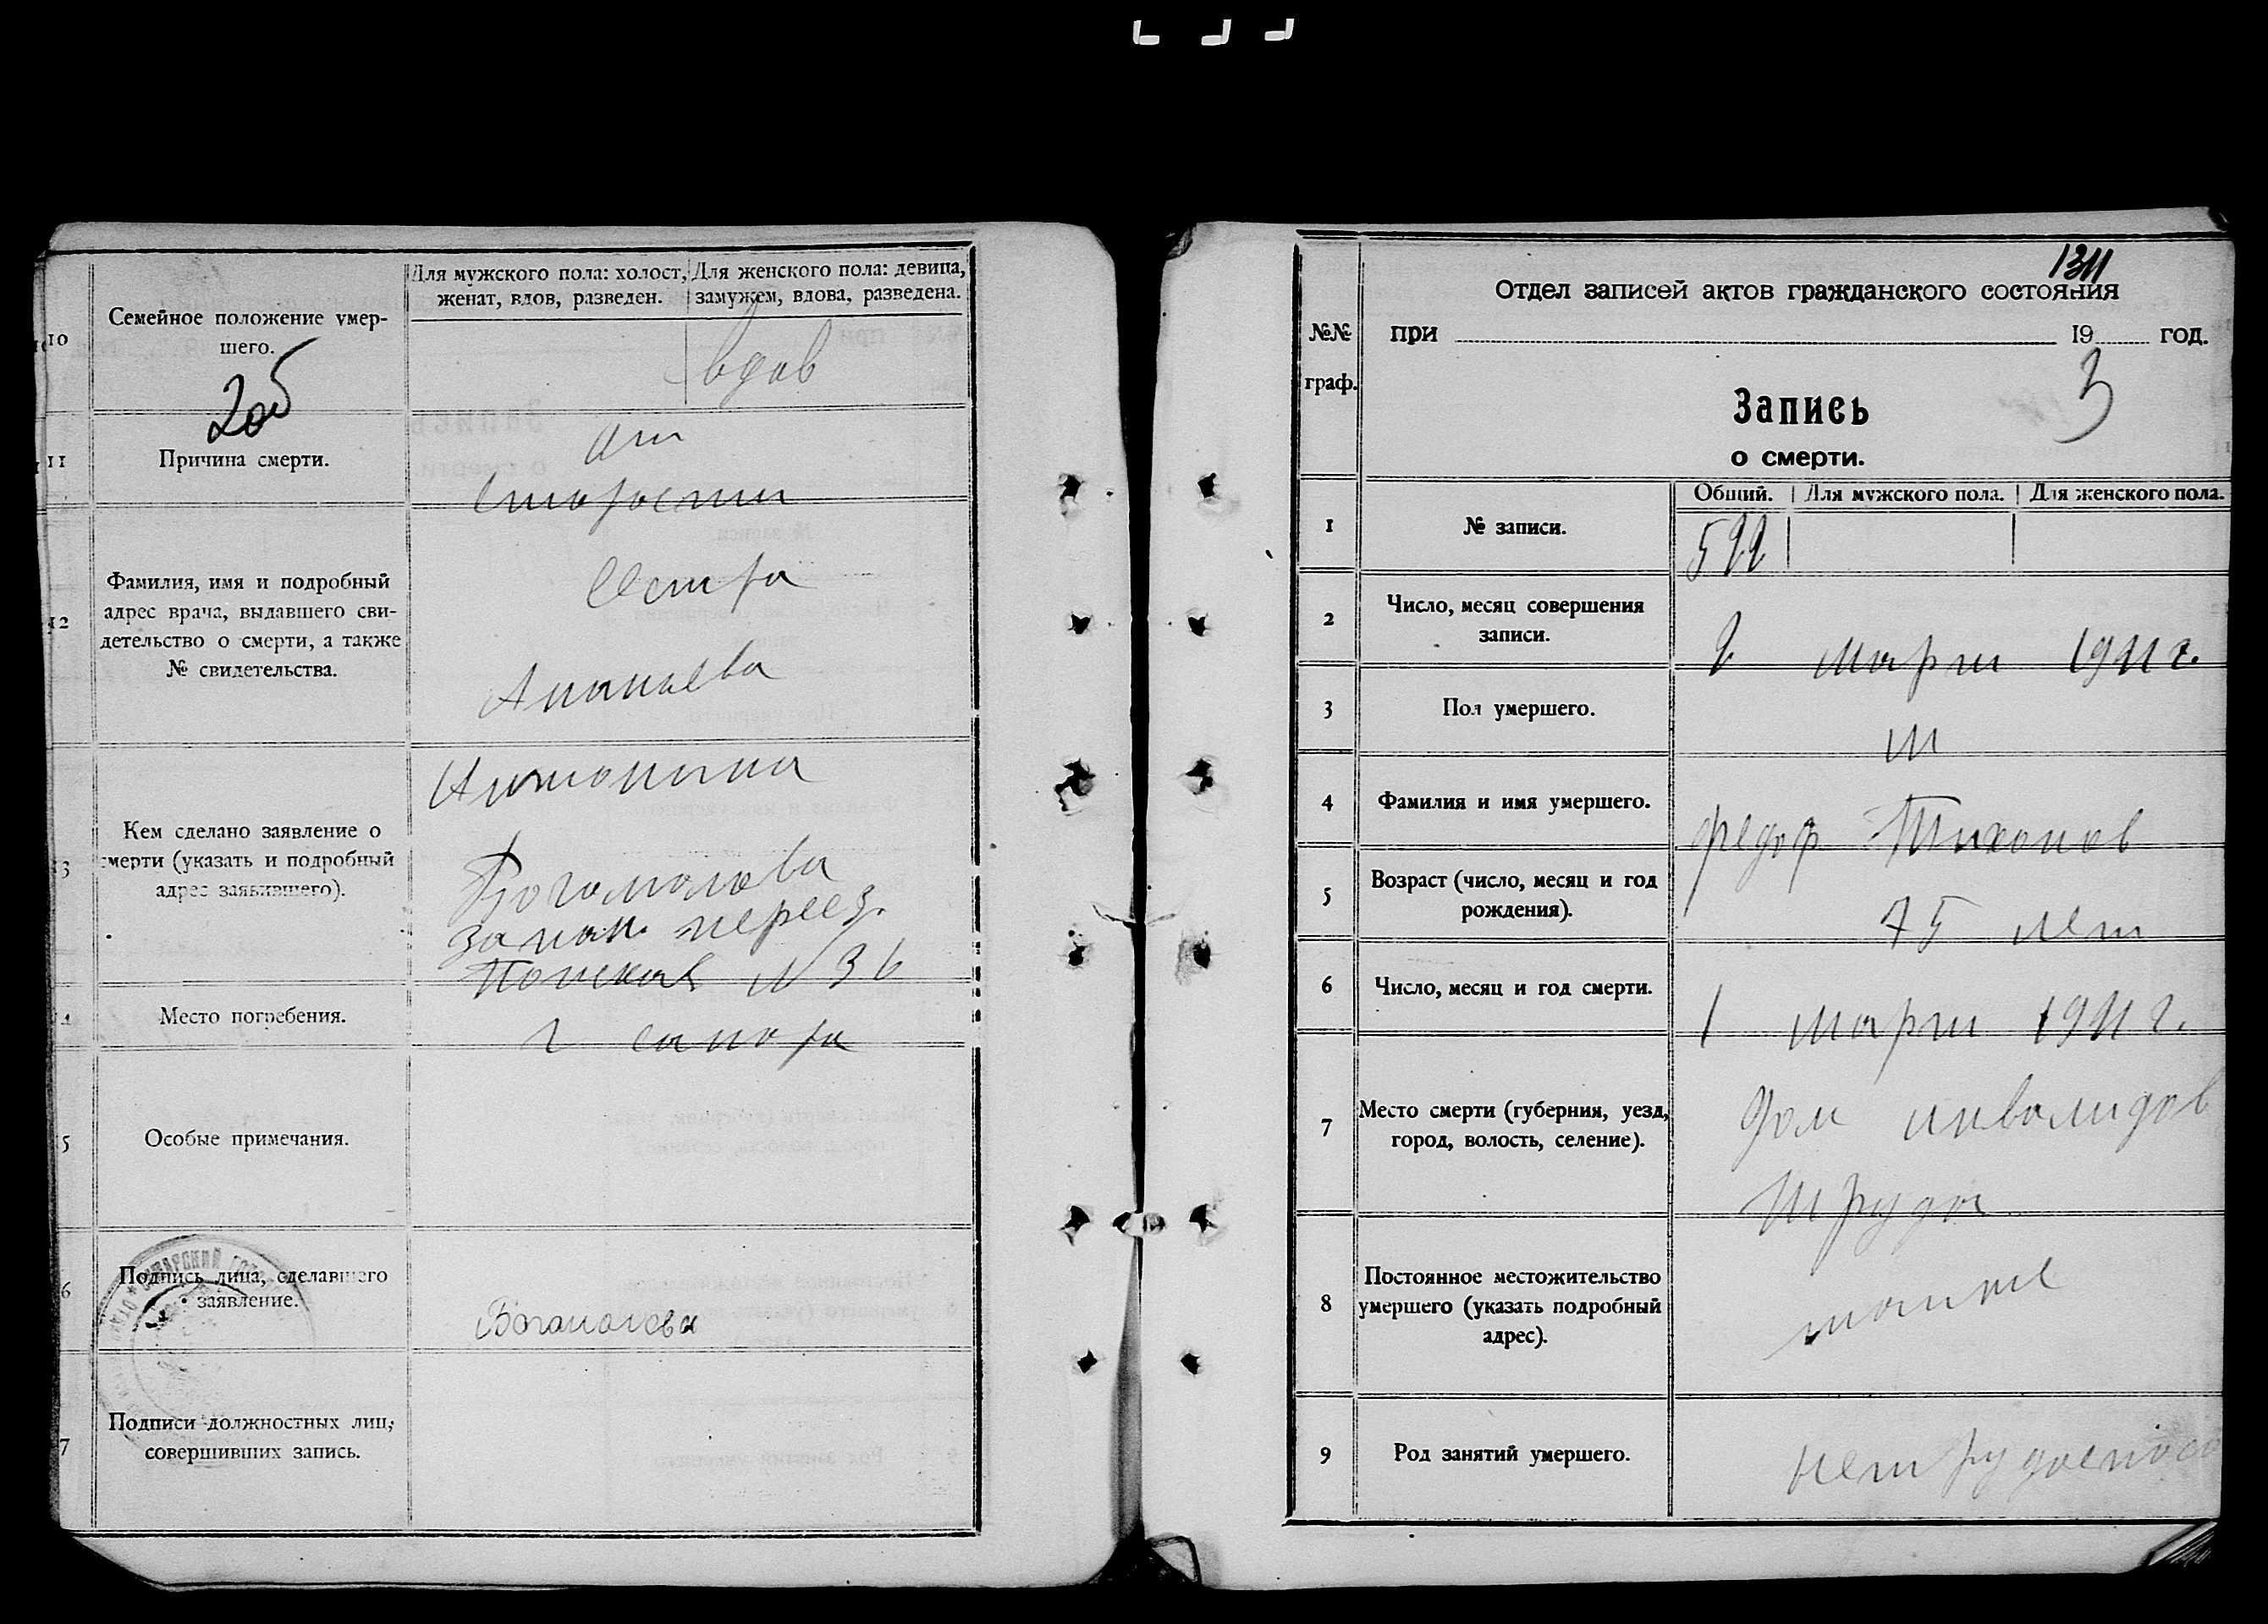 10
Семейное положение умер-
шего.
Для мужского пола: холост,
женат, вдов, разведен.
Для женского пола: девица,
замужем, вдова, разведена.
вдов
11
Причина смерти.
от
старости
12
Фамилия, имя и подробный
адрес врача, выдавшего сви-
детельство о смерти, а также
№ свидетельства.
Сестра
Ананьева
3
Кем сделано заявление о
смерти (указать и подробный
адрес заявившего).
Антонина
Богомолова
запан. переез.
№ 36
Место погребения.
г самара
5
Особые примечания.
6
Подпись лица, сделавшего
заявление.
Богомолова
7
Подписи должностных лиц,
совершивших запись.
Отдел записей актов гражданского состояния
№№
граф.
при 19 год.
3
Запись
о смерти.
Общий. Для мужского пола. Для женского пола.
1
№ записи.
522
2
Число, месяц совершения
записи.
2 марта
3
Пол умершего.
м
4
Фамилия и имя умершего.
Федор Тихонов
5
Возраст (число, месяц и год
рождения).
75 лет
6
Число, месяц и год смерти.
1 марта
7
Место смерти (губерния, уезд,
город, волость, селение).
Дом инвалидов
труда
8
Постоянное местожительство
умершего (указать подробный
адрес).
там же
9
Род занятий умершего.
нетрудоспосо